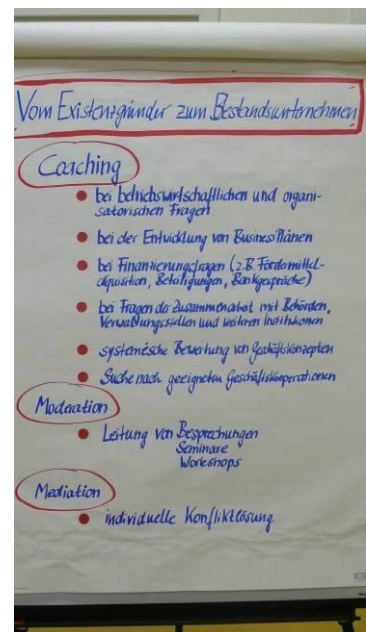 Vom Existenzgründer zum Bestandsunternehmen
Coaching
bei betriebswirtschaftlichen und organi-
satorischen Fragen
bei der Entwicklung von Business Plänen
bei Finanzierungsfragen (z.B. Fördermittel-
akquisition, Beteiligungen, Bankgespräche)
bei Fragen der Zusammenarbeit mit Behörden,
Verwaltungsstellen und weiteren Institutionen
systemische Bewertung von Geschäftskonzepten
Suche nach geeigneten Geschäftskooperationen
Moderation
Leitung von Besprechungen
Seminare
Workshops
Mediation
individuelle Konfliktlösung